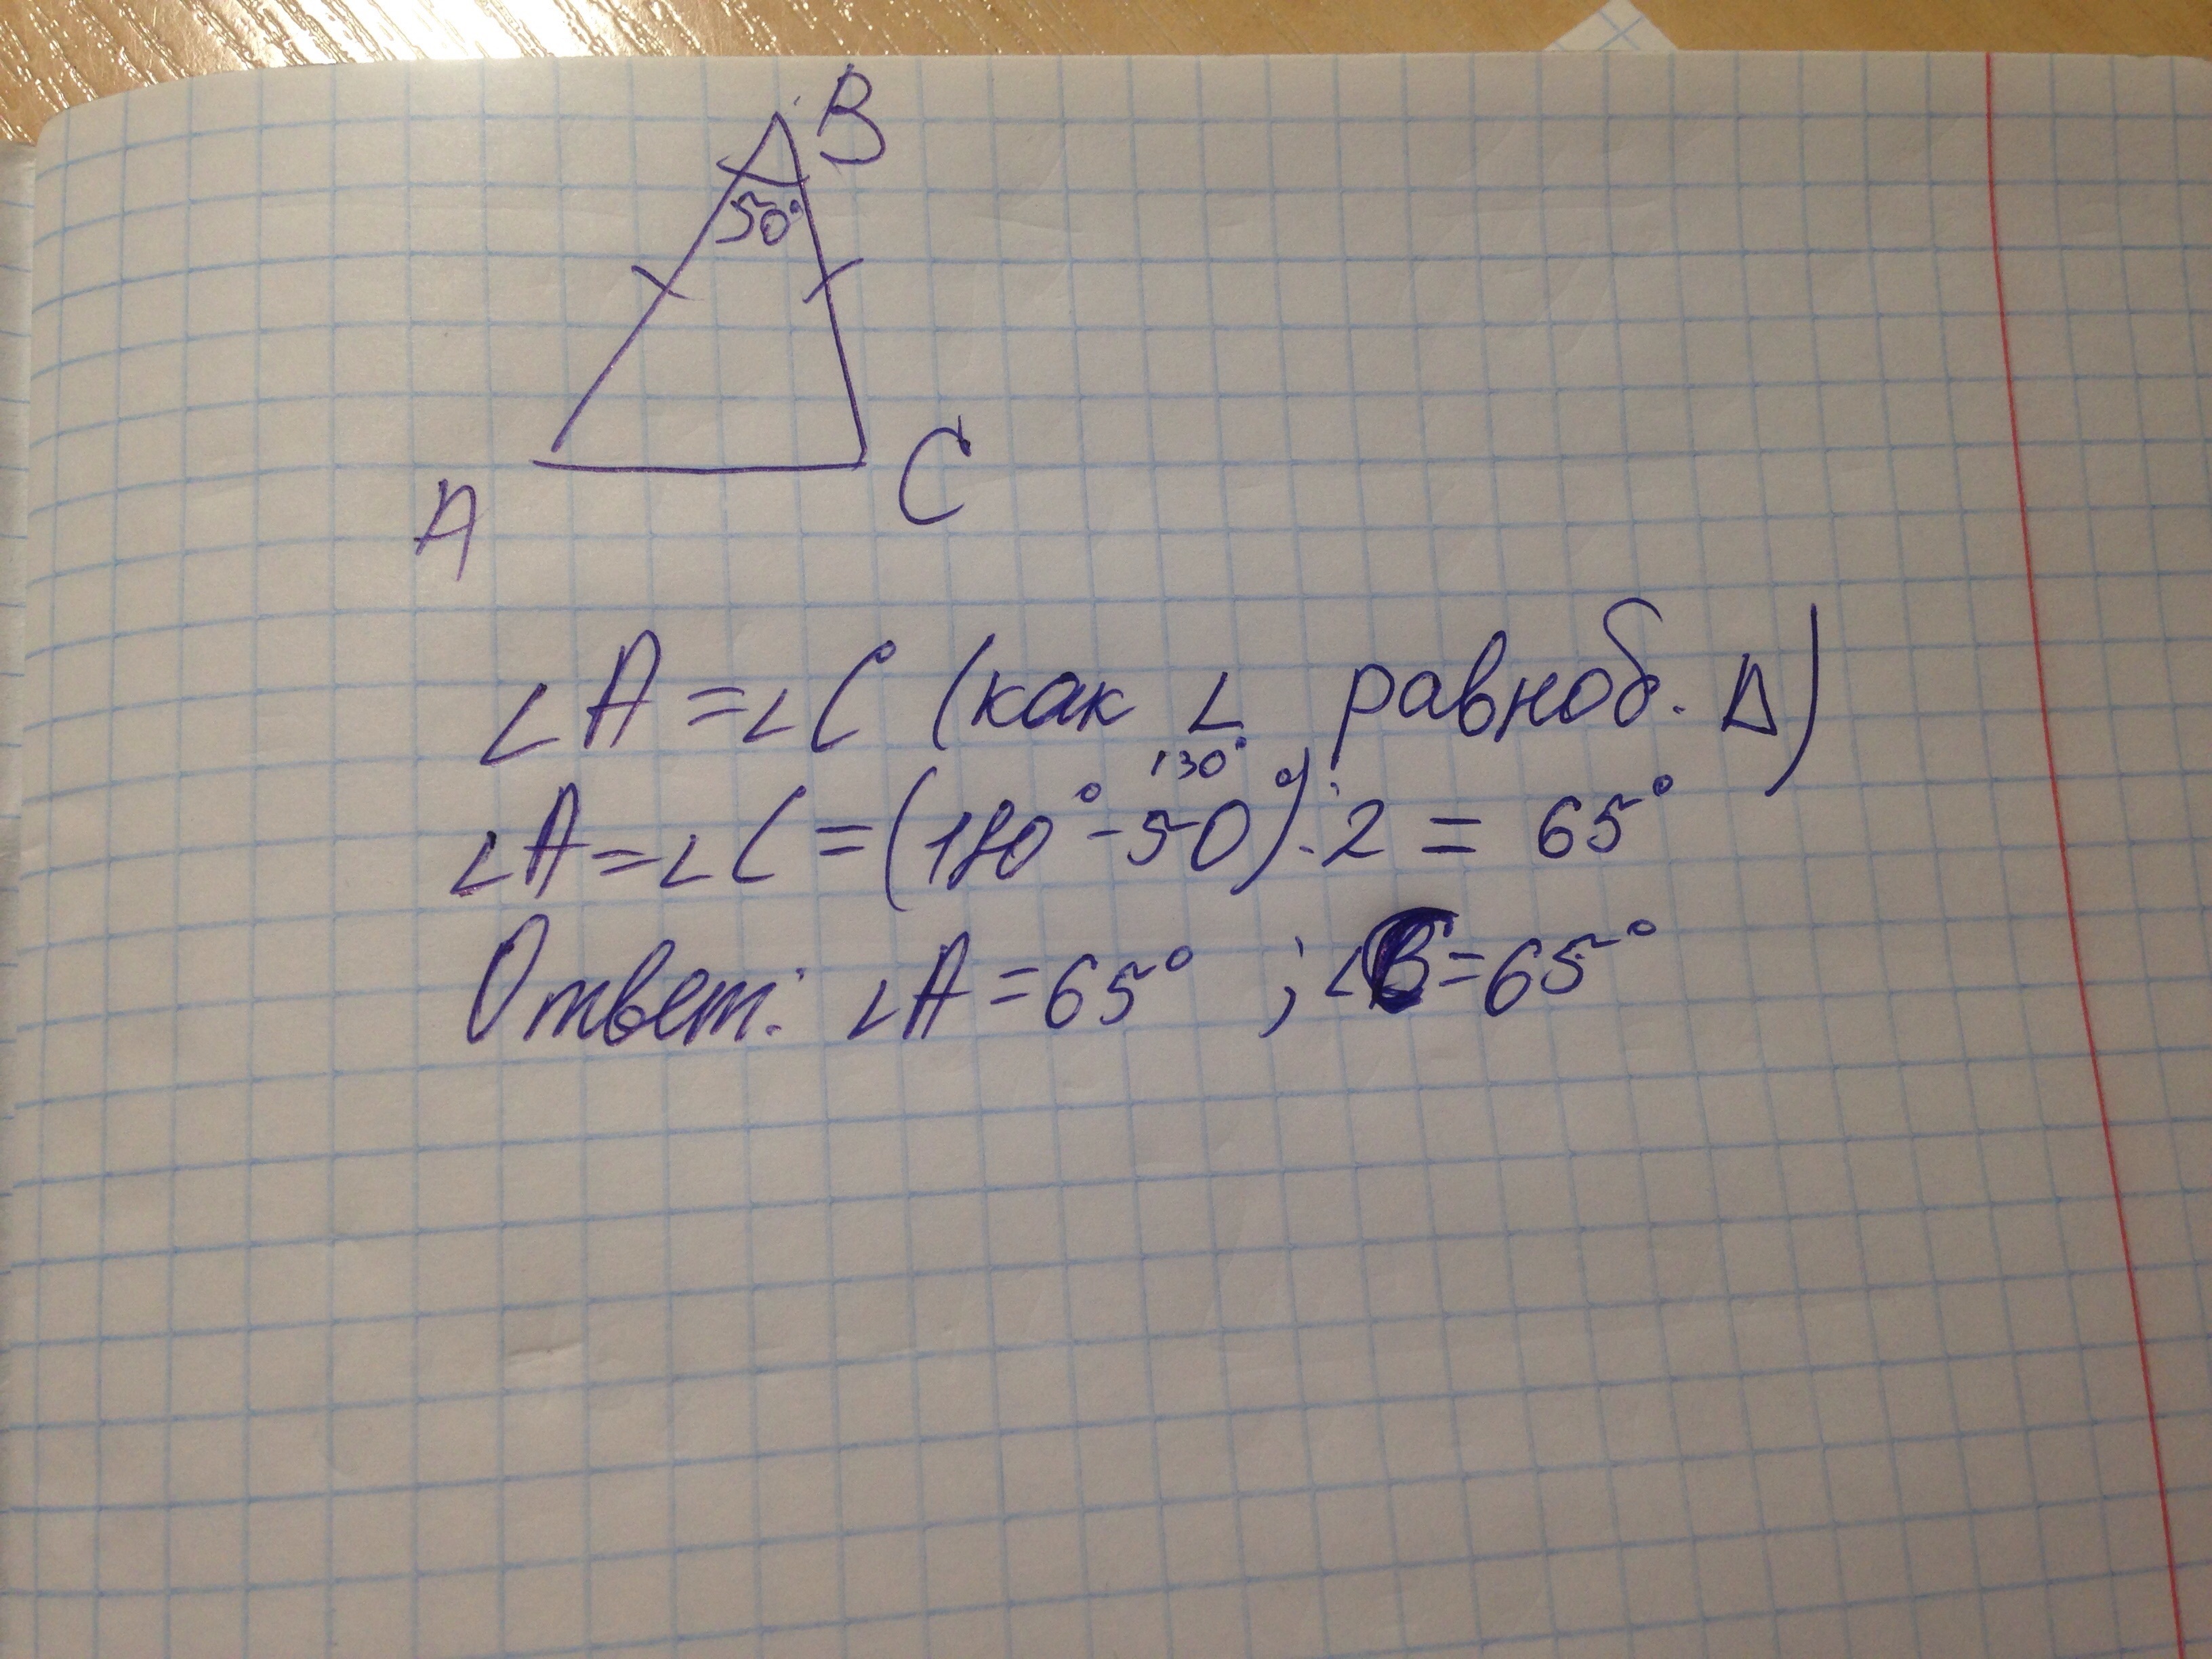 B
50°
A
C
∠A=∠C (как ∠ равноб. Δ)
130°
∠A=∠C=(180°-50°):2=65°
Ответ: ∠A=65°; ∠=65°